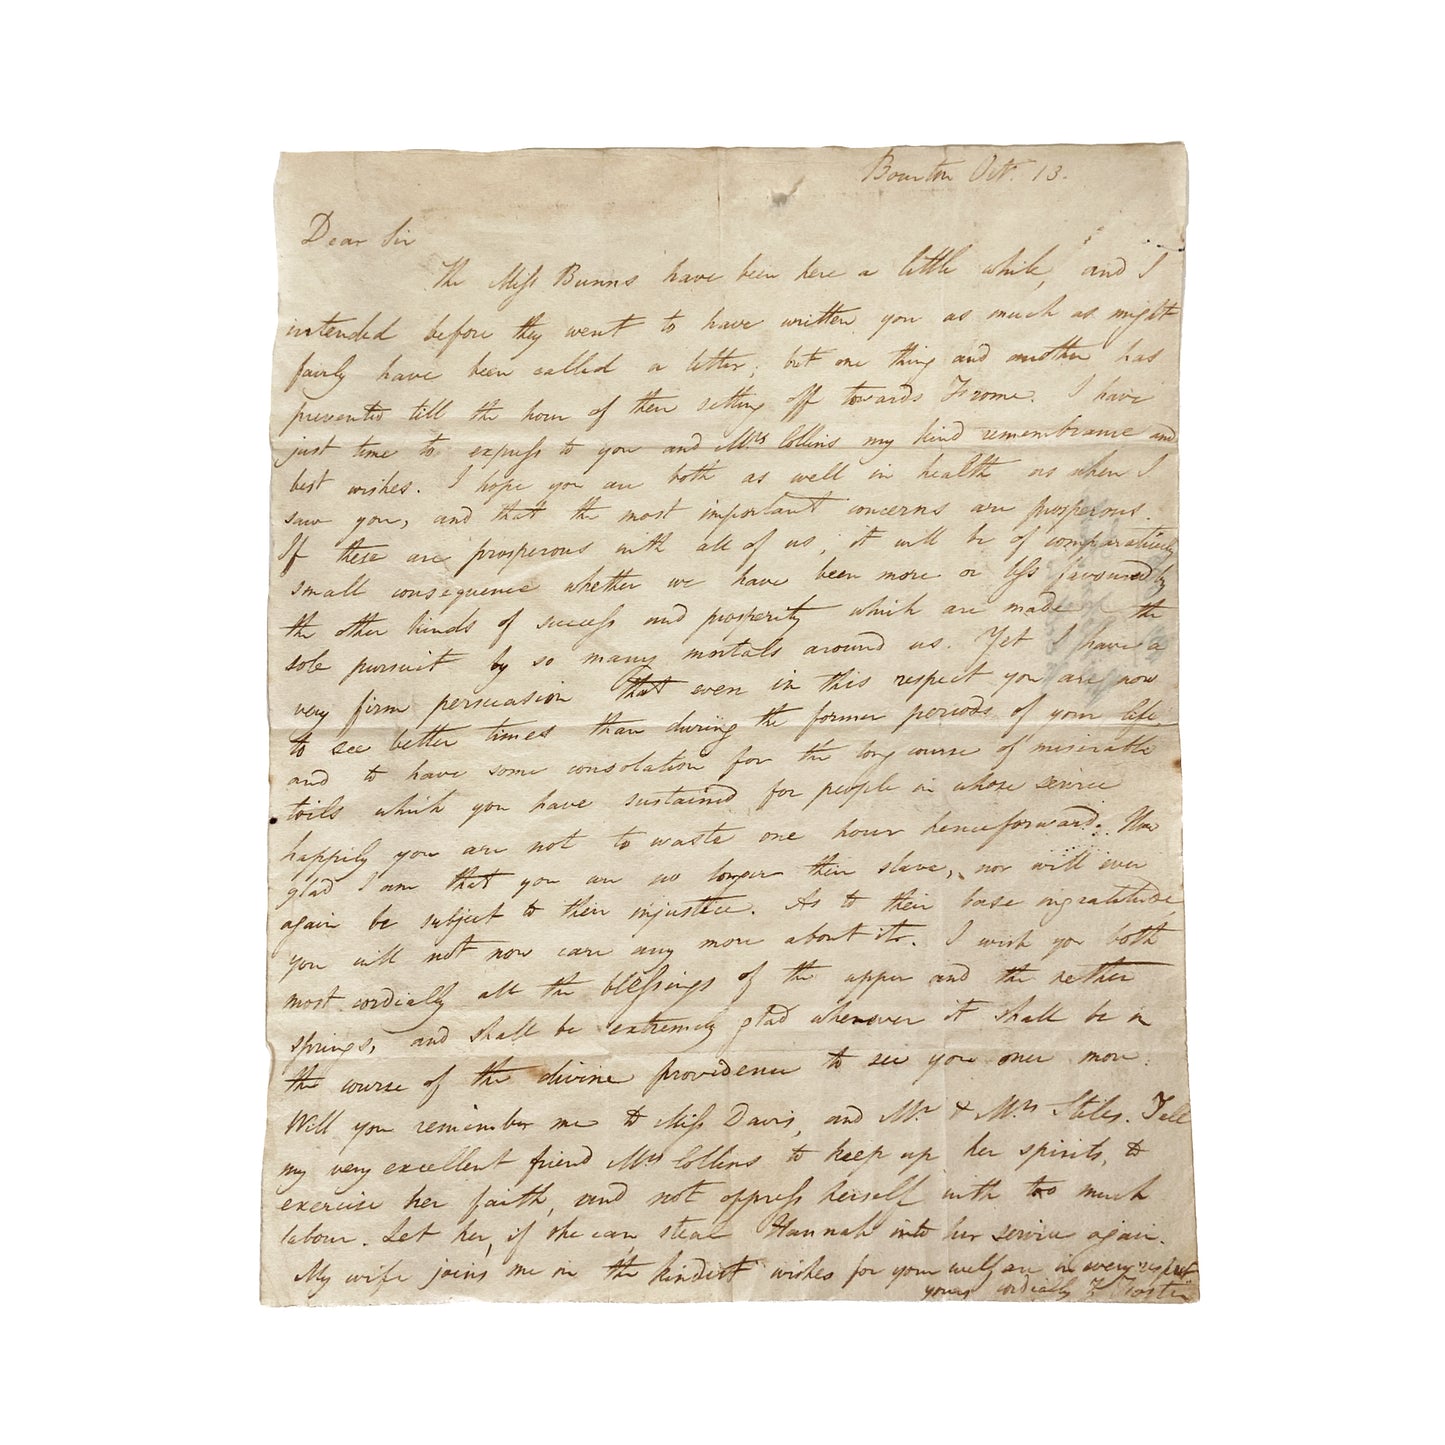 Bourton Oct. 13.
Dear Sir
The Miss Bunns have been here a little while, and I
intended before they went to have written you as much as might
fairly have been called a letter; but one thing and another has
prevented till the hour of their setting off towards Frome. I have
just time to express to you and Mrs Collins my kind remembrance and
best wishes. I hope you are both as well in health as when I
saw you, and that the most important concerns are prosperous.
If these are prosperous with all of us, it will be of comparatively
small consequence whether we have been more or less favoured by
the other kinds of success and prosperity which are made the
sole pursuit by so many mortals around us. Yet I have a
very firm persuasion that even in this respect you are now
to see better times than during the former periods of your life,
and to have some consolation for the long course of miserable
toils which you have sustained for people in whose service
happily you are not to waste one hour henceforward. How
glad I am that you are no longer their slave, nor will ever
again be subject to their injustice. As to their base ingratitude,
you will not now care any more about it. I wish you both
most cordially all the blessings of the upper and the nether
springs, and shall be extremely glad whenever it shall be in
the course of the divine providence to see you once more.
Will you remember me to Miss Davis, and Mr & Mrs Stiles. Tell
my very excellent friend Mrs Collins to keep up her spirits, to
exercise her faith, and not oppress herself with too much
labour. Let her, if she can, steal Hannah into her service again.
My wife joins me in the kindest wishes for your welfare in every respect
yours cordially J Foster